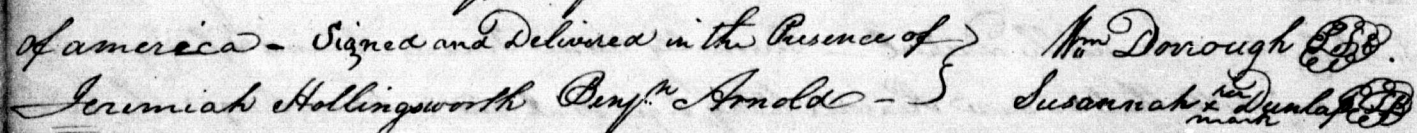 of america - Signed and Delivered in the Presence of } Wm Dorrough LS.
Jeremiah Hollingsworth Benjn Arnold - } Susannah her x mark Dunlap LS